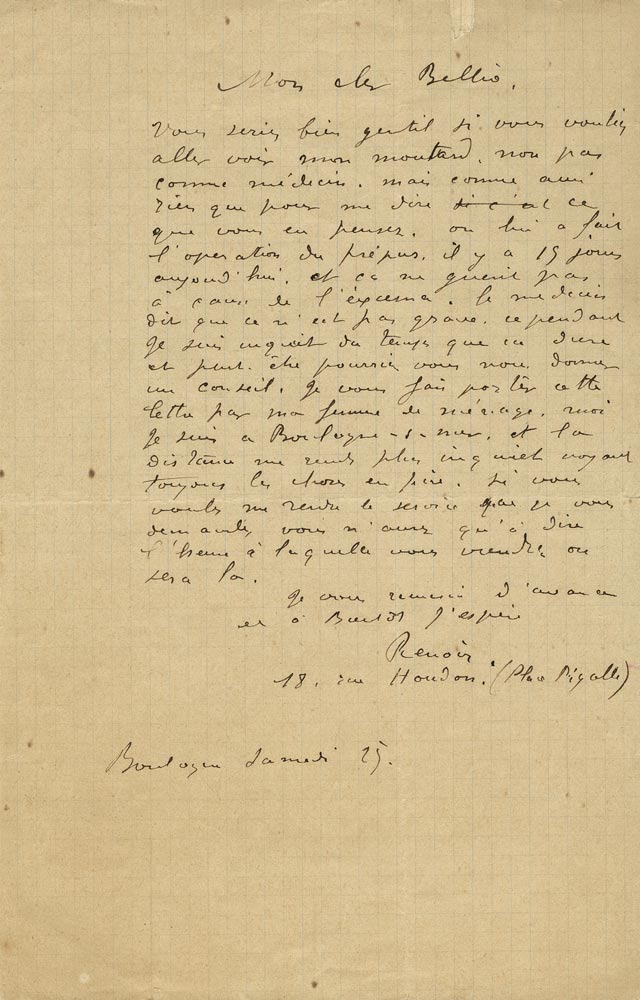 Mon cher Bellio,
Vous seriez bien gentil si vous vouliez
aller voir mon moutard, non pas
comme médecin, mais comme ami
rien que pour me dire si c'est ce
que vous en pensez. on lui a fait
l'operation du prépus, il y a 15 jours
aujourd'hui, et ca ne guerit pas
à cause de l'éxcema. le medecin
dit que ce n'est pas grave. cependant
Je suis inquiet du temps que ca dure
et peut-être pourriez vous nous donner
un conseil. Je vous fais porter cette
lettre par ma femme de ménage. moi
Je suis a Boulogne-s-mer, et la
distance me rends plus inquiet voyant
toujours les choses en pire. si vous
voulez me rendre le service que je vous
demande, vous n'avez qu'à dire
l'heure à laquelle vous viendrez on
sera la.
Je vous remercie d'avance
et à Bientôt J'espère
Renoir
18, rue Houdon. (Place Pigalle)
Boulogne Samedi 25.